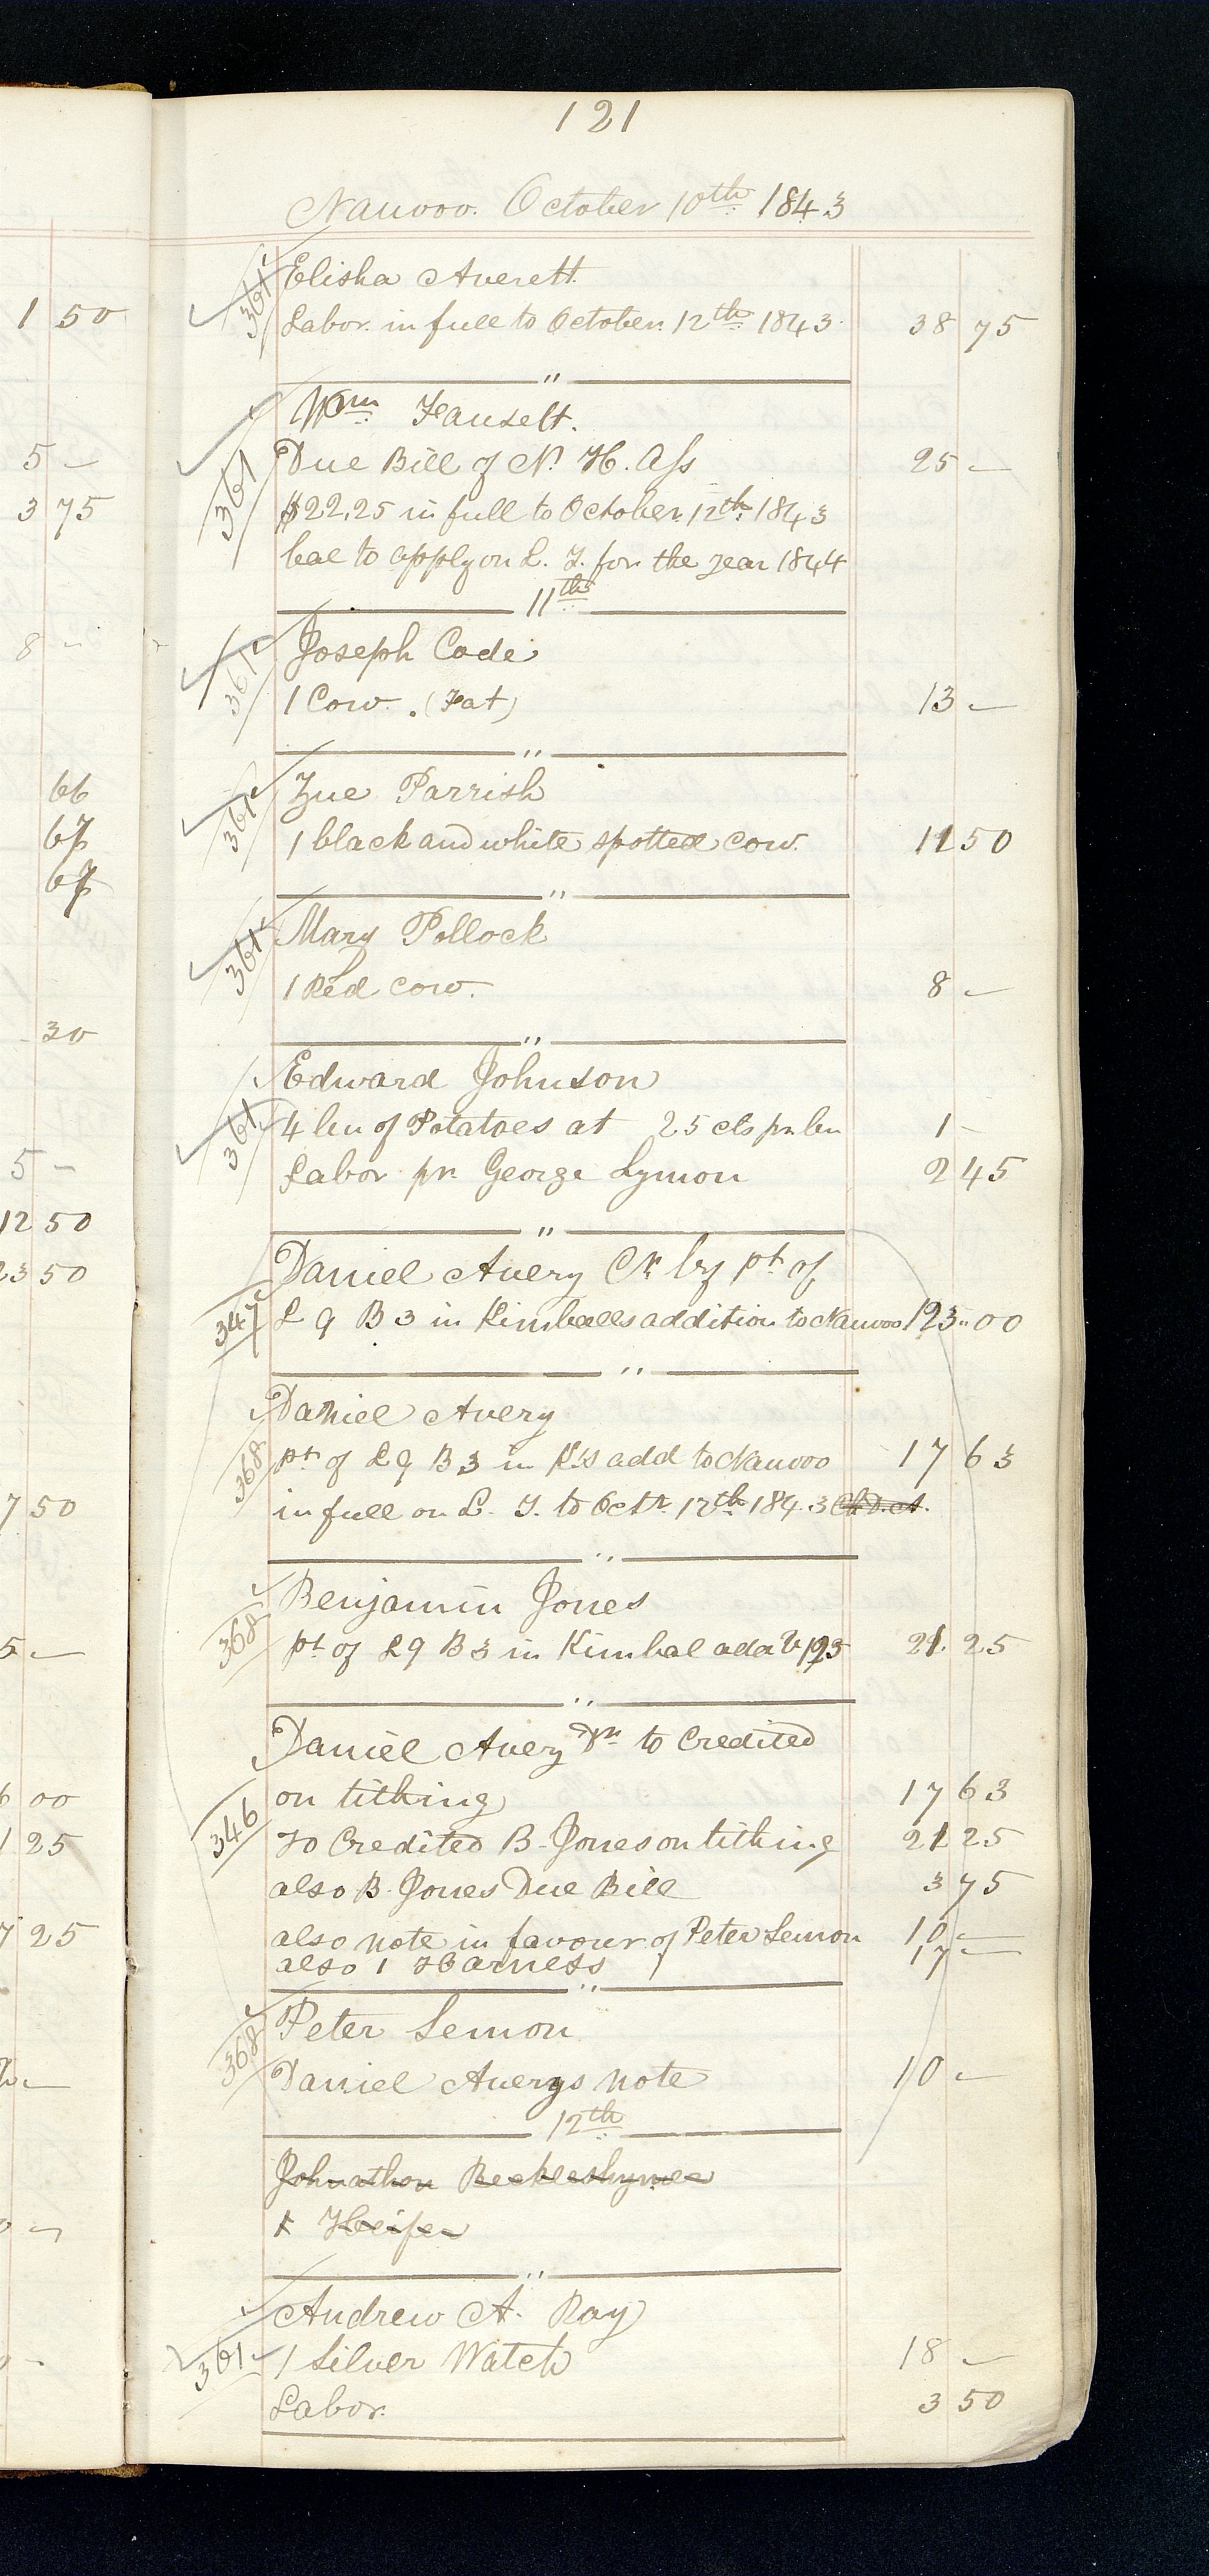 121
Nauvoo. October 10th 1843
1 50
5 –
3 75
8 –
66
67
67
30
5 –
12 50
23 50
7 50
5 –
6 00
1 25
7 25
361 Elisha Averett
Labor in full to October 12th 1843 38 75
"
361 Wm Fausett.
Due Bill of N. H. Ass 25 –
$22,25 in full to October 12th 1843
bal to apply on L. T. for the year 1844
11th
361 Joseph Cade
1 Cow. (Fat) 13 –
"
361 Zue Parrish
1 black and white spotted cow. 11 50
"
361 Mary Pollock
1 Red cow. 8 –
"
361 Edward Johnson
4 bu of Potatoes at 25 cts pr bu 1 –
Labor pr George Lymon 2 45
"
347 Daniel Avery Cr by pt of
L 9 B 3 in Kimballs addition to Nauvoo 123..00
"
368 Daniel Avery
pt of L 9 B 3 in K's add to Nauvoo 17 63
in full on L. T. to Octr 12th 1843
"
368 Benjamin Jones
pt of L 9 B 3 in Kimbal add 21 25
"
Daniel Avery Dr to Credited
346 on tithing 17 63
To Credited B. Jones on tithing 21 25
also B. Jones Due Bill 3 75
also note in favour of Peter Lemon 10 –
also 1 Harness 17 –
"
368 Peter Lemon
Daniel Averys note 10 –
12th
Johnathon
1 Heifer
"
Andrew A. Ray
361 1 Silver Watch 18 –
Labor. 3 50